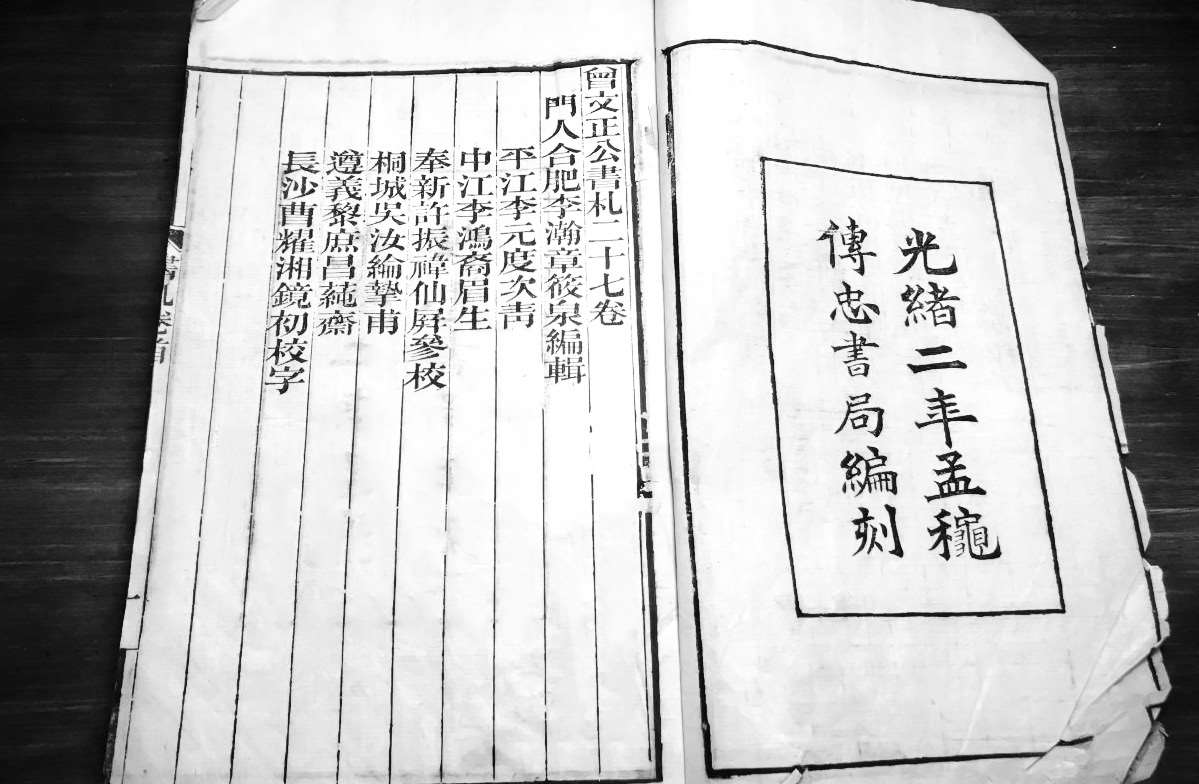 光緒二年孟龝
傳忠書局編刻
曾文正公書札二十七卷
門人合肥李瀚章筱泉編輯
平江李元度次靑
中江李鴻裔眉生
奉新許振禕仙屛參校
桐城吳汝綸摯甫
遵義黎庶昌蒓齋
長沙曹耀湘鏡初校字